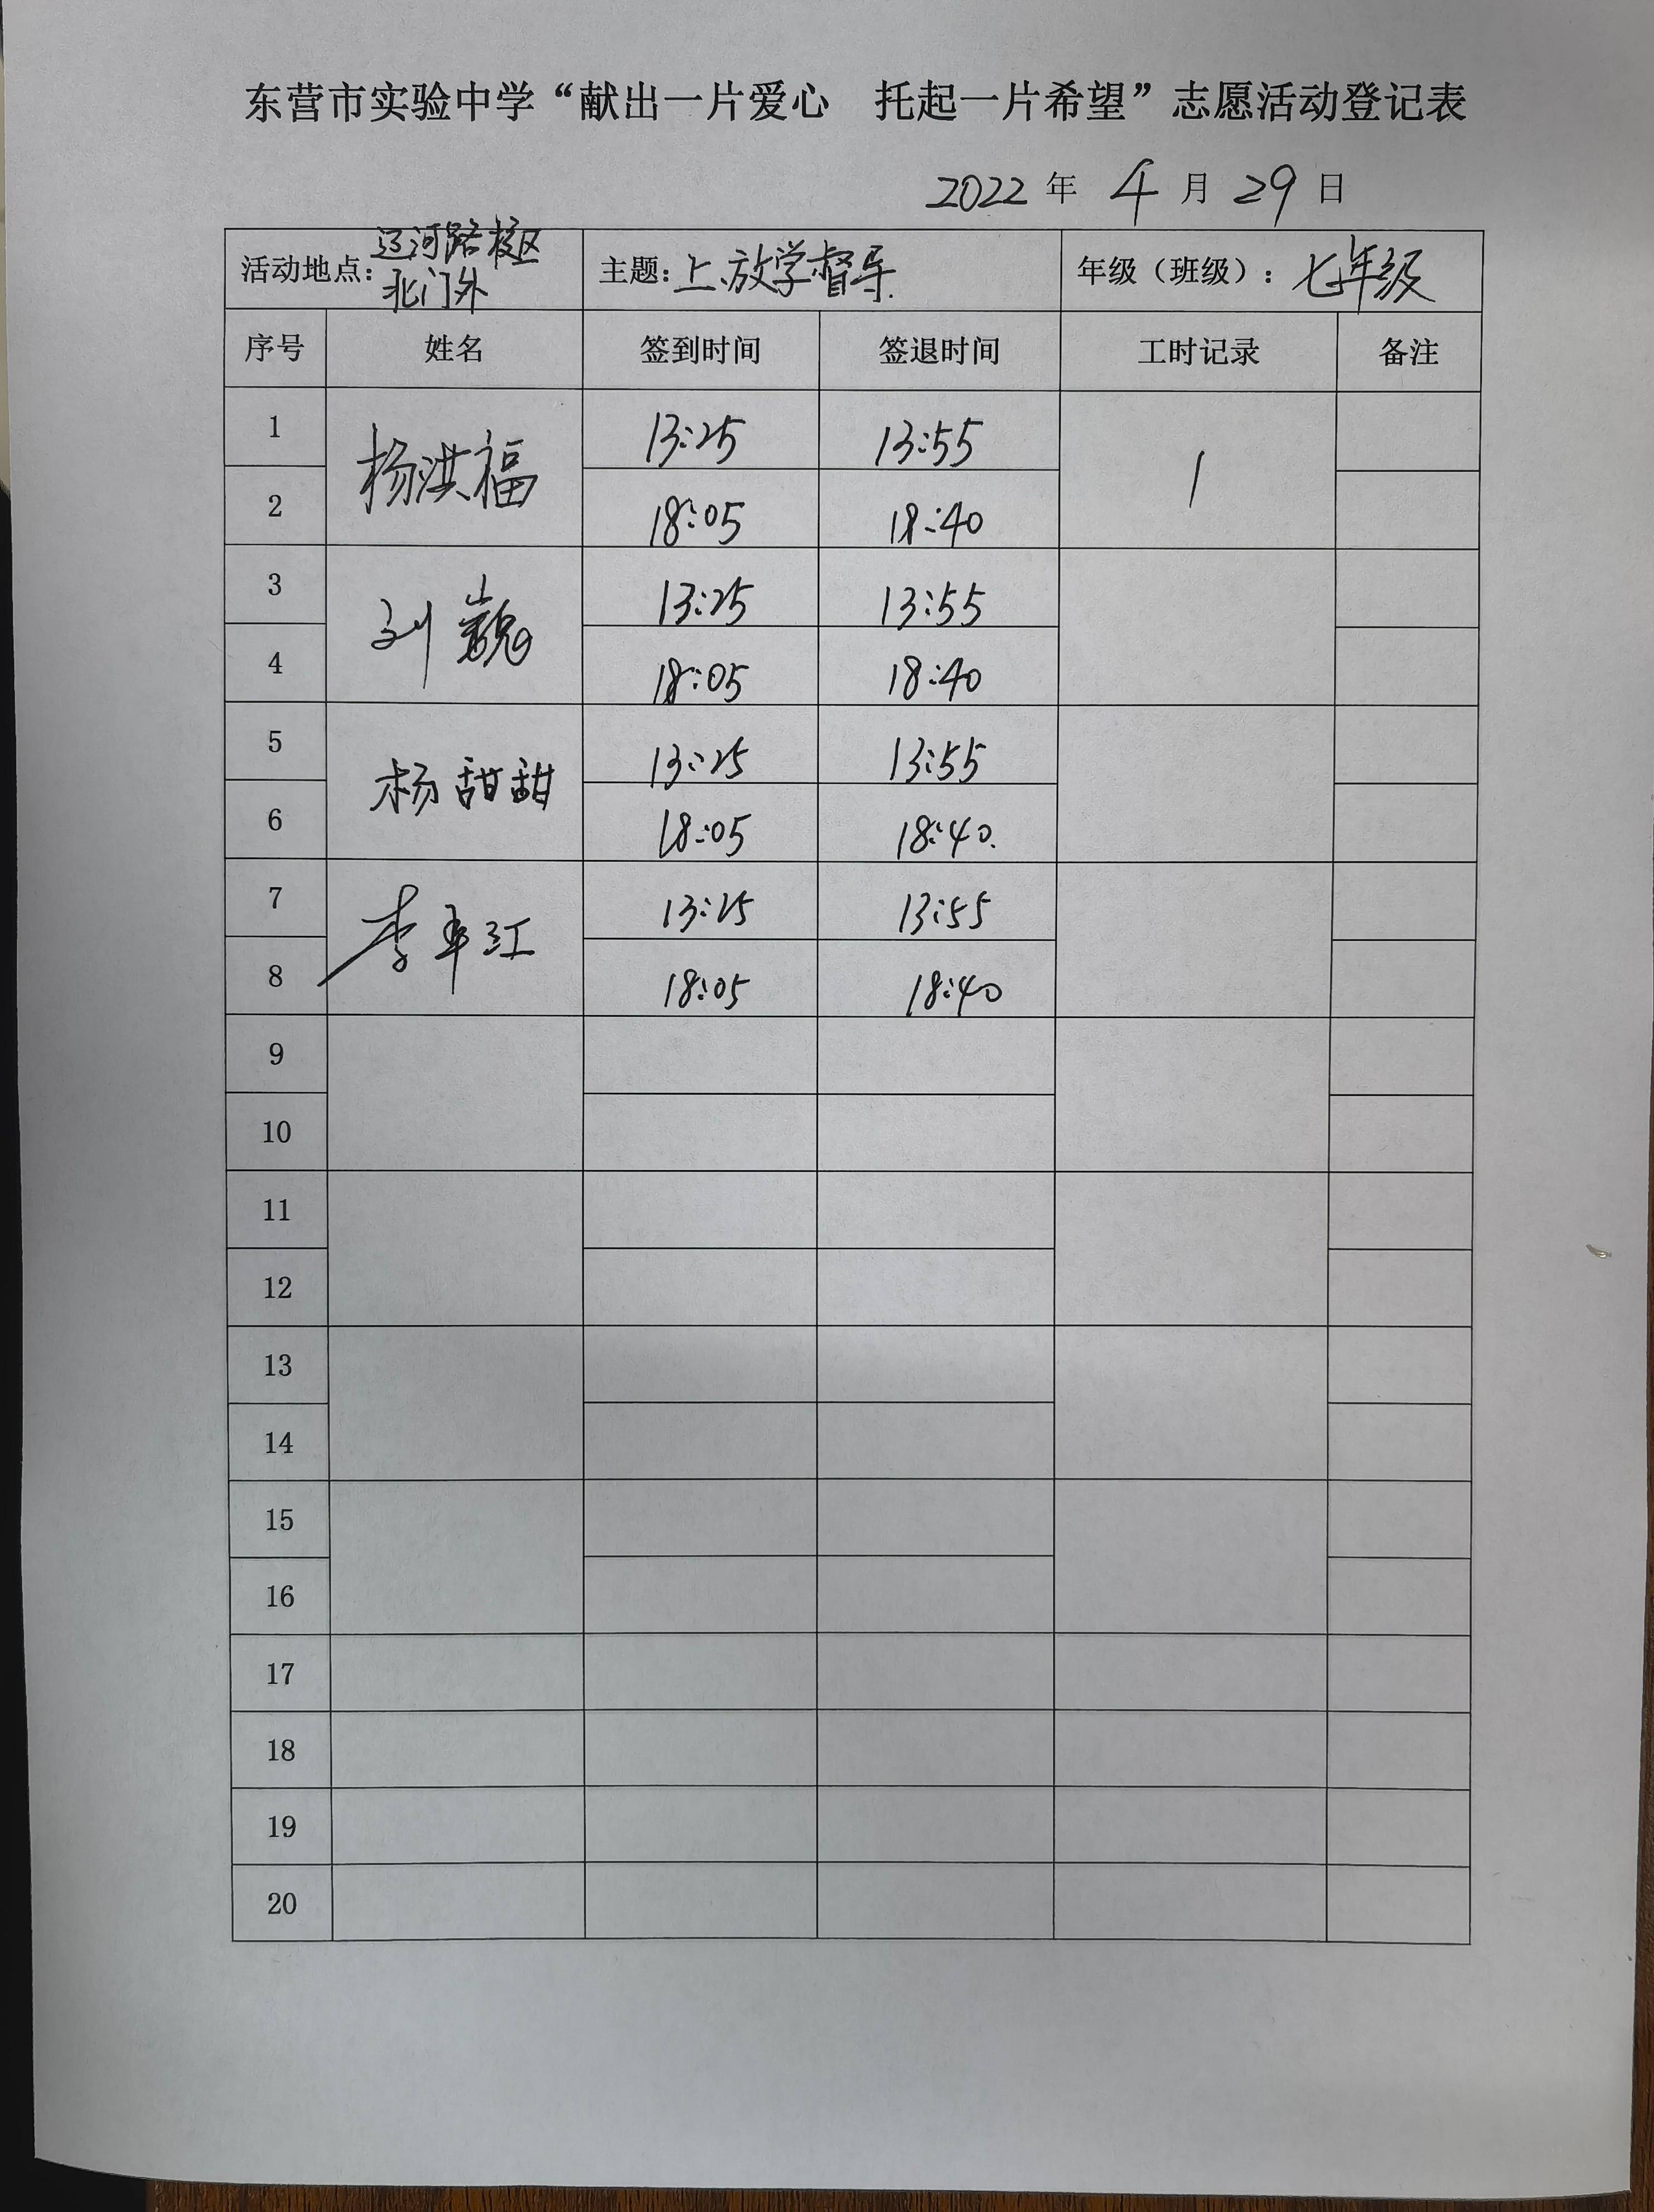 东营市实验中学“献出一片爱心 托起一片希望”志愿活动登记表
2022 年 4 月 29 日
活动地点：辽河路校区北门外 主题：上、放学督导 年级（班级）：七年级
序号 姓名 签到时间 签退时间 工时记录 备注
1 杨洪福 13:25 13:55 1
2 18:05 18:40
3 刘巍 13:25 13:55
4 18:05 18:40
5 杨甜甜 13:25 13:55
6 18:05 18:40
7 李 江 13:25 13:55
8 18:05 18:40
9
10
11
12
13
14
15
16
17
18
19
20